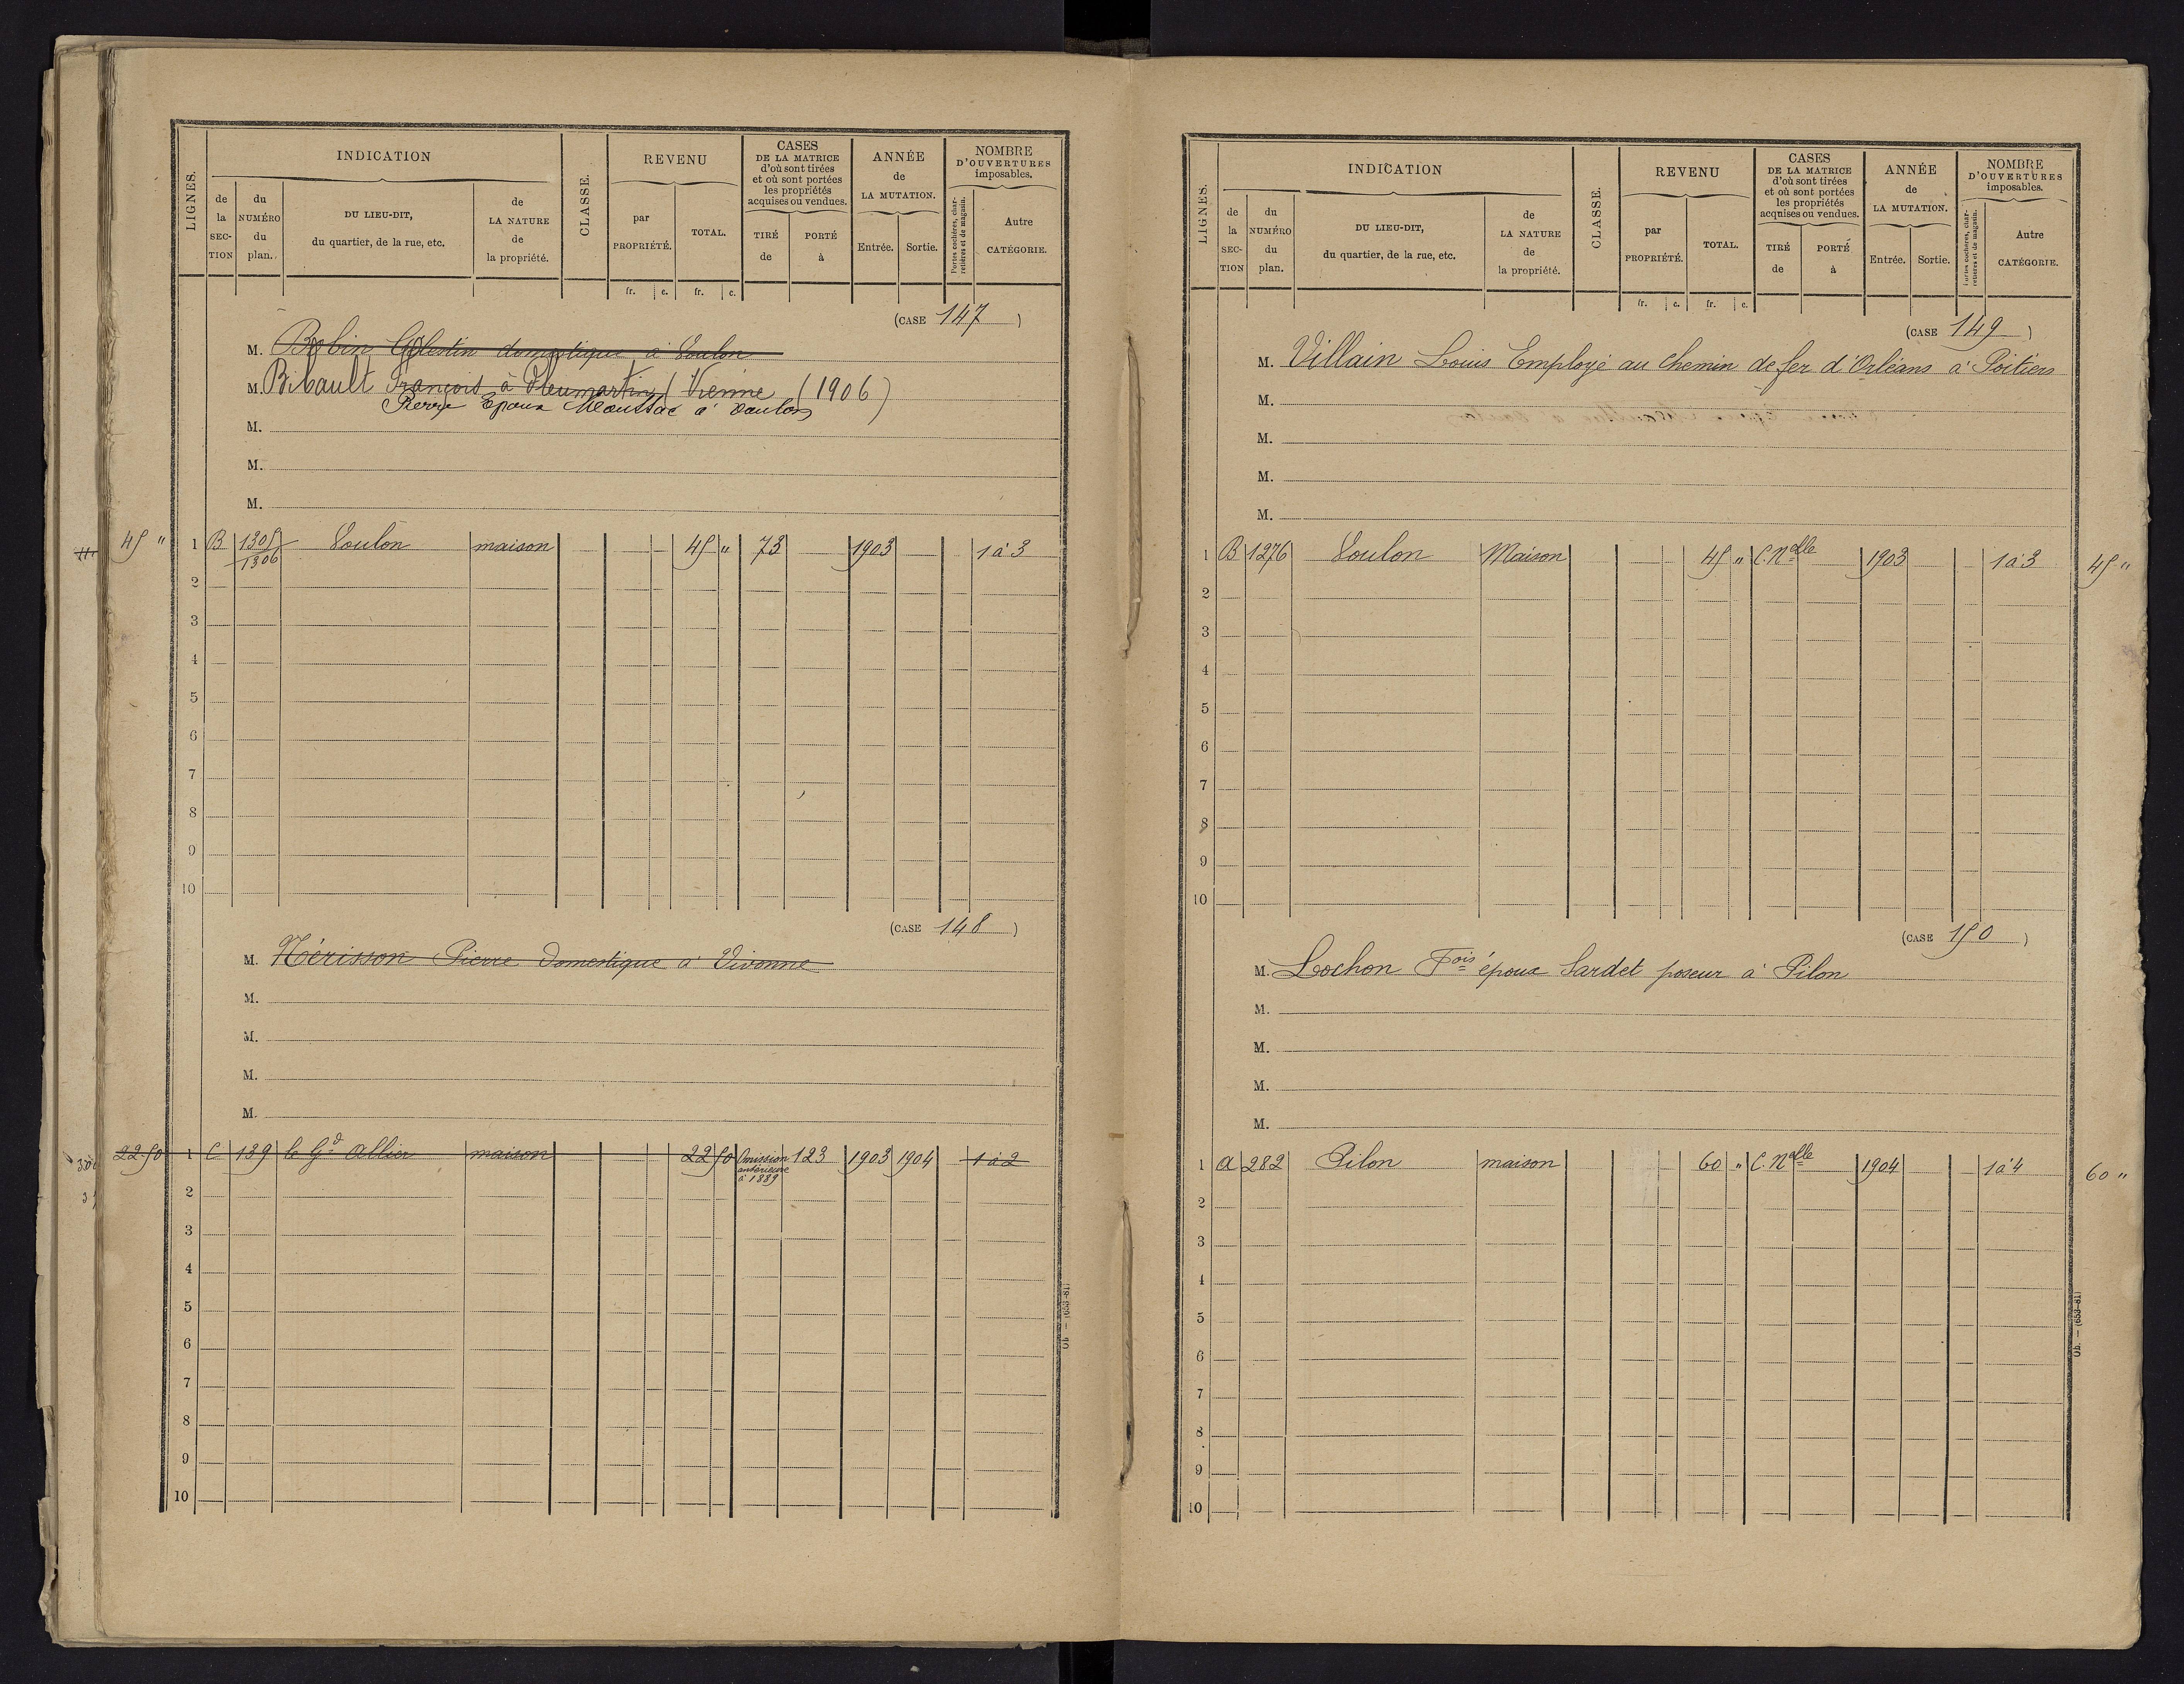 LIGNES.
INDICATION
de la SECTION
du NUMÉRO du plan.
DU LIEU-DIT, du quartier, de la rue, etc.
de LA NATURE de la propriété.
CLASSE.
REVENU
par PROPRIÉTÉ.
TOTAL.
CASES DE LA MATRICE d'où sont tirées et où sont portées les propriétés acquises ou vendues.
TIRÉ de
PORTÉ à
ANNÉE de LA MUTATION.
Entrée.
Sortie.
NOMBRE D'OUVERTURES imposables.
Portes cochères, charretières et de magasin.
Autre CATÉGORIE.
fr. c. fr. c.
(CASE 147)
M. Bobin Célestin domestique à Voulon
M. Bibault François à Pleumartin (Vienne (1906)
Pierre Epoux Moussac à Voulon
M.
M.
M.
45 " 1 B 1305 Voulon maison 45 " 73 1903 1 à 3
1306
2
3
4
5
6
7
8
9
10
(CASE 148)
M. Hérisson Pierre Domestique à Vivonne
M.
M.
M.
M.
22 50 1 C 139 le Gd Allier maison 22 50 Omission 123 1903 1904 1 à 2
antérieure
à 1889
2
3
4
5
6
7
8
9
10
Ob. — (653-81)
LIGNES.
INDICATION
de la SECTION
du NUMÉRO du plan.
DU LIEU-DIT, du quartier, de la rue, etc.
de LA NATURE de la propriété.
CLASSE.
REVENU
par PROPRIÉTÉ.
TOTAL.
CASES DE LA MATRICE d'où sont tirées et où sont portées les propriétés acquises ou vendues.
TIRÉ de
PORTÉ à
ANNÉE de LA MUTATION.
Entrée.
Sortie.
NOMBRE D'OUVERTURES imposables.
Portes cochères, charretières et de magasin.
Autre CATÉGORIE.
fr. c. fr. c.
(CASE 149)
M. Villain Louis Employé au chemin de fer d'Orléans à Poitiers
M.
M.
M.
M.
1 B 1276 Voulon Maison 45 " C. Nelle 1903 1 à 3 45 "
2
3
4
5
6
7
8
9
10
(CASE 150)
M. Lochon Fois époux Sardet poseur à Pilon
M.
M.
M.
M.
1 A 282 Pilon maison 60 " C. Nelle 1904 1 à 4 60 "
2
3
4
5
6
7
8
9
10
Ob. — (653-81)